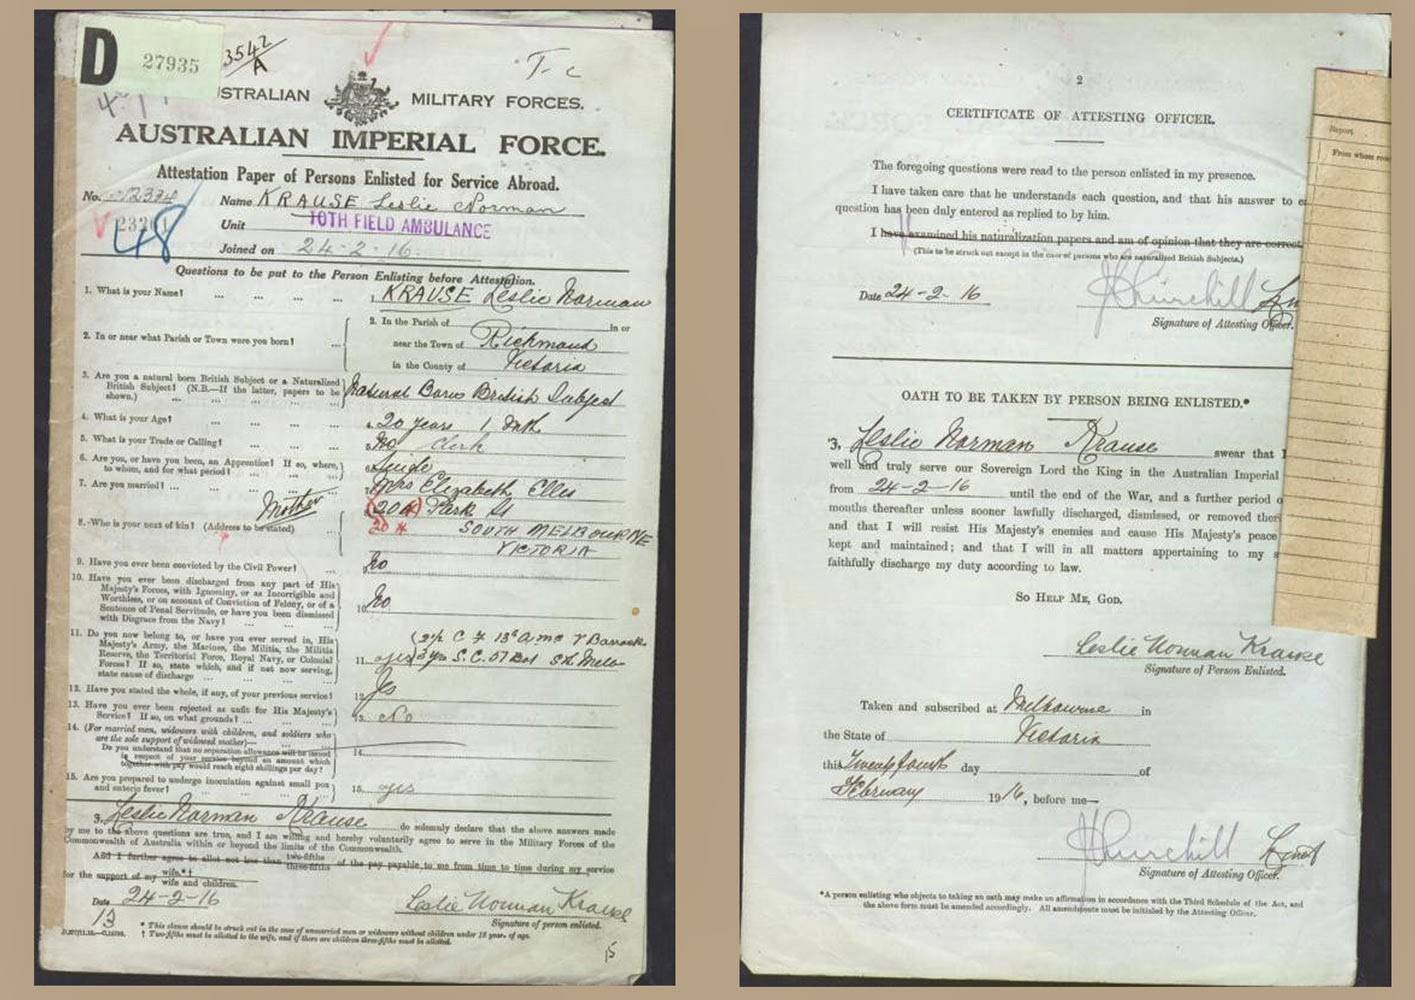 D 27935
3542
A
T-c
AUSTRALIAN MILITARY FORCES.
AUSTRALIAN IMPERIAL FORCE.
Attestation Paper of Persons Enlisted for Service Abroad.
No. Name KRAUSE Leslie Norman
48 Unit 10TH FIELD AMBULANCE
Joined on 24-2-16.
Questions to be put to the Person Enlisting before Attestation.
1. What is your Name? ... ... ... ... 1. KRAUSE Leslie Norman
2. In or near what Parish or Town were you born? ...
2. In the Parish of in or
near the Town of Richmond
in the County of Victoria
3. Are you a natural born British Subject or a Naturalized
British Subject? (N.B.—If the latter, papers to be
shown.) ... ... ... ...
Natural Born British Subject
4. What is your Age? ... ... ... ... 20 years 1 mth
5. What is your Trade or Calling? ... ... ... Clerk
6. Are you, or have you been, an Apprentice? If so, where, No
to whom, and for what period?
7. Are you married? ... ... ... ... Single
Mother
8. Who is your next of kin? (Address to be stated)
Mrs Elizabeth Elles
Park St
20
SOUTH MELBOURNE
VICTORIA
9. Have you ever been convicted by the Civil Power? ... No
10. Have you ever been discharged from any part of His
Majesty's Forces, with Ignominy, or as Incorrigible and
Worthless, or on account of Conviction of Felony, or of a
Sentence of Penal Servitude, or have you been dismissed
with Disgrace from the Navy? ... ... ...
10. No
11. Do you now belong to, or have you ever served in, His
Majesty's Army, the Marines, the Militia, the Militia
Reserve, the Territorial Force, Royal Navy, or Colonial
Forces? If so, state which, and if not now serving,
state cause of discharge ... ... ...
11. yes
12. Have you stated the whole, if any, of your previous service? 12. Yes
13. Have you ever been rejected as unfit for His Majesty's
Service? If so, on what grounds? ... ... 13. No
14. (For married men, widowers with children, and soldiers who
are the sole support of widowed mother)—
Do you understand that no separation allowance will be issued
in respect of your service beyond an amount which
together with pay would reach eight shillings per day?
14.
15. Are you prepared to undergo inoculation against small pox
and enteric fever? ... ... ... ... 15. yes
I, Leslie Norman Krause do solemnly declare that the above answers made
by me to the above questions are true, and I am willing and hereby voluntarily agree to serve in the Military Forces of the
Commonwealth of Australia within or beyond the limits of the Commonwealth.
And I further agree to allot not less than two-fifths three-fifths of the pay payable to me from time to time during my service
for the support of my wife.*†
wife and children.
Date 24-2-16
Leslie Norman Krause
Signature of person enlisted.
13
* This clause should be struck out in the case of unmarried men or widowers without children under 18 year. of age.
† Two-fifths must be allotted to the wife, and if there are children three-fifths must be allotted.
15
2
CERTIFICATE OF ATTESTING OFFICER.
The foregoing questions were read to the person enlisted in my presence.
I have taken care that he understands each question, and that his answer to e
question has been duly entered as replied to by him.
I have examined his naturalization papers and am of opinion that they are correct.
(This to be struck out except in the case of persons who are naturalized British Subjects.)
Date 24-2-16 Churchill
Signature of Attesting Officer.
OATH TO BE TAKEN BY PERSON BEING ENLISTED.*
I, Leslie Norman Krause swear that I
well and truly serve our Sovereign Lord the King in the Australian Imperial
from 24-2-16 until the end of the War, and a further period o
months thereafter unless sooner lawfully discharged, dismissed, or removed ther
and that I will resist His Majesty's enemies and cause His Majesty's peace
kept and maintained; and that I will in all matters appertaining to my s
faithfully discharge my duty according to law.
SO HELP ME, GOD.
Leslie Norman Krause
Signature of Person Enlisted.
Taken and subscribed at Melbourne in
the State of Victoria
this Twenty fourth day of
February 1916, before me—
Churchill
Signature of Attesting Officer.
*A person enlisting who objects to taking an oath may make an affirmation in accordance with the Third Schedule of the Act, and
the above form must be amended accordingly. All amendments must be initialed by the Attesting Officer.
Report
From whom